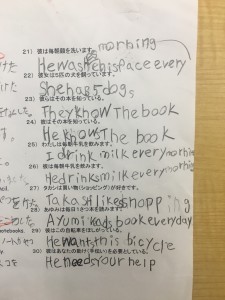 morning
21) 彼は毎朝顔を洗います。
He washe his face every
22) 彼女は5匹の犬を飼っています。
She has 5 dogs
23) 彼らはその本を知っている。
They know The book
24) 彼はその本を知っている。
He knows The book
25) わたしは毎朝牛乳を飲みます。
I drink milk every morning
26) 彼は毎朝牛乳を飲みます。
He drinks milk every morning
27) タカシは買い物(ショッピング)が好きです。
Takashi likes shopping
28) あゆみは毎日1さつ本を読みます。
Ayumi reads book everyday
29) 彼はこの自転車をほしがっている。
He want this bicycle
30) 彼はあなたの助け(手伝い)を必要としている。
He needs your help